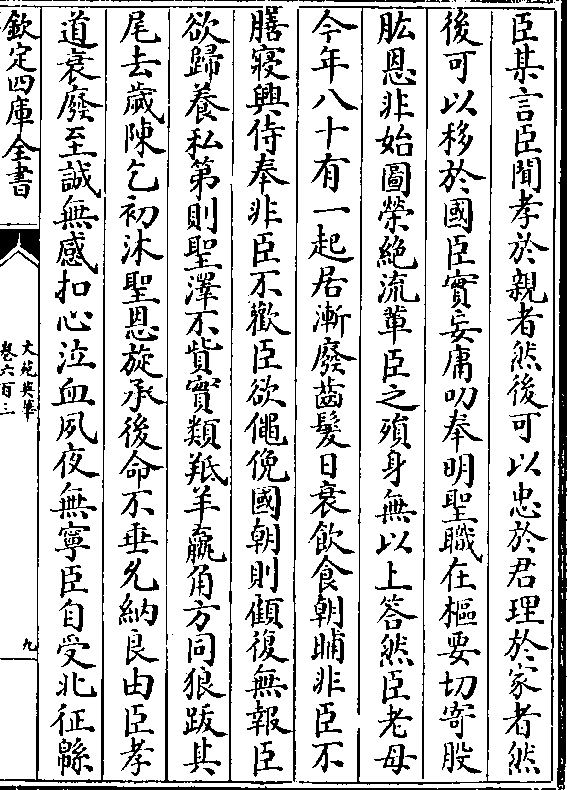 臣某言臣聞孝於親者然後可以忠於君理於家者然
後可以移於國臣實妄庸叨奉明聖職在樞要切寄股
肱恩非始圖榮絶流輩臣之殞身無以上答然臣老母
今年八十有一起居漸廢齒髮日衰飲食朝晡非臣不
膳寢興侍奉非臣不歡臣欲僶俛國朝則顧復無報臣
欲歸養私第則聖澤不貲實類羝羊羸角方同狼跋其
尾去歲陳乞初沐聖恩旋承後命不垂允納良由臣孝
道衰廢至誠無感扣心泣血夙夜無寧臣自受北征緜
欽定四庫全書
文苑英華
卷六百三
九